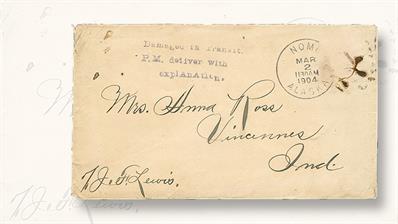 Damaged in transit.
P.M. deliver with
explanation.
NOME
MAR
2
1130AM
1904
ALASKA
Mrs. Anna Ross
Vincennes
Ind.
Lewis.